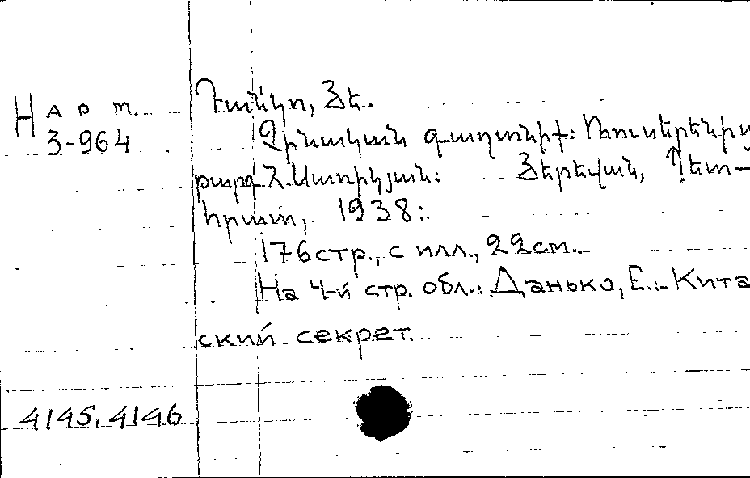 Нарт.
3-964
Դանկո, Յե.
Չինական գաղտնիք: Ռուսերենից
թարգ. Հ. Սաղիկյան: Յերեվան, Պետ-
հրատ, 1938:
176 стр., с илл., 22 см.
На 4-й стр. обл.: Данько, Е.- Кита
ский секрет.
4145, 4146